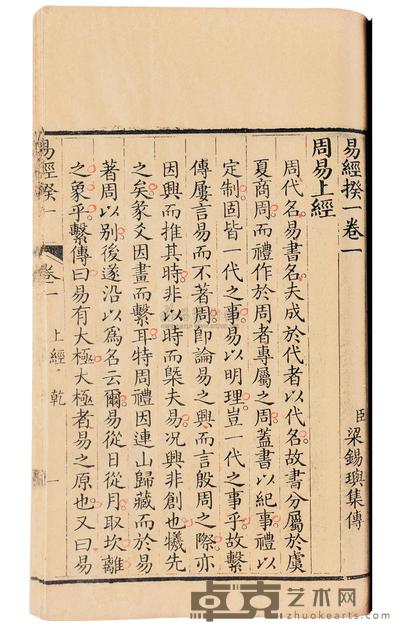 易經揆一卷一
臣梁錫璵集傳
周易上經
周代名易書名夫成於代者以代名故書分屬於虞
夏商周而禮作於周者專屬之周蓋書以紀事禮以
定制固皆一代之事易以明理豈一代之事乎故繫
傳屢言易而不著周即論易之興而言殷周之際亦
因興而推其時非以時而槩夫易况興非創也犧先
之矣彖爻因畫而繫耳特周禮因連山歸藏而於易
著周以别後遂沿以為名云爾易從日從月取坎離
之象乎繫傳曰易有大極大極者易之原也又曰易
易經揆一
卷一
上經 乾
一
卓克艺术网
zhuokearts.com